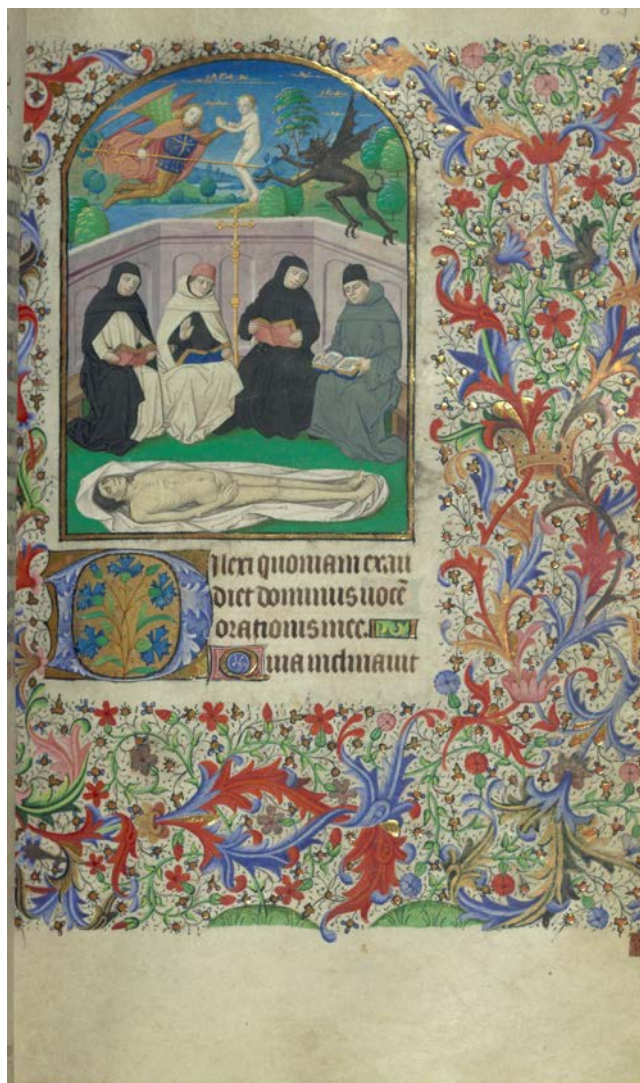 Dilexi quoniam exau
diet dominus uocē
orationis mee.
Quia inclinauit